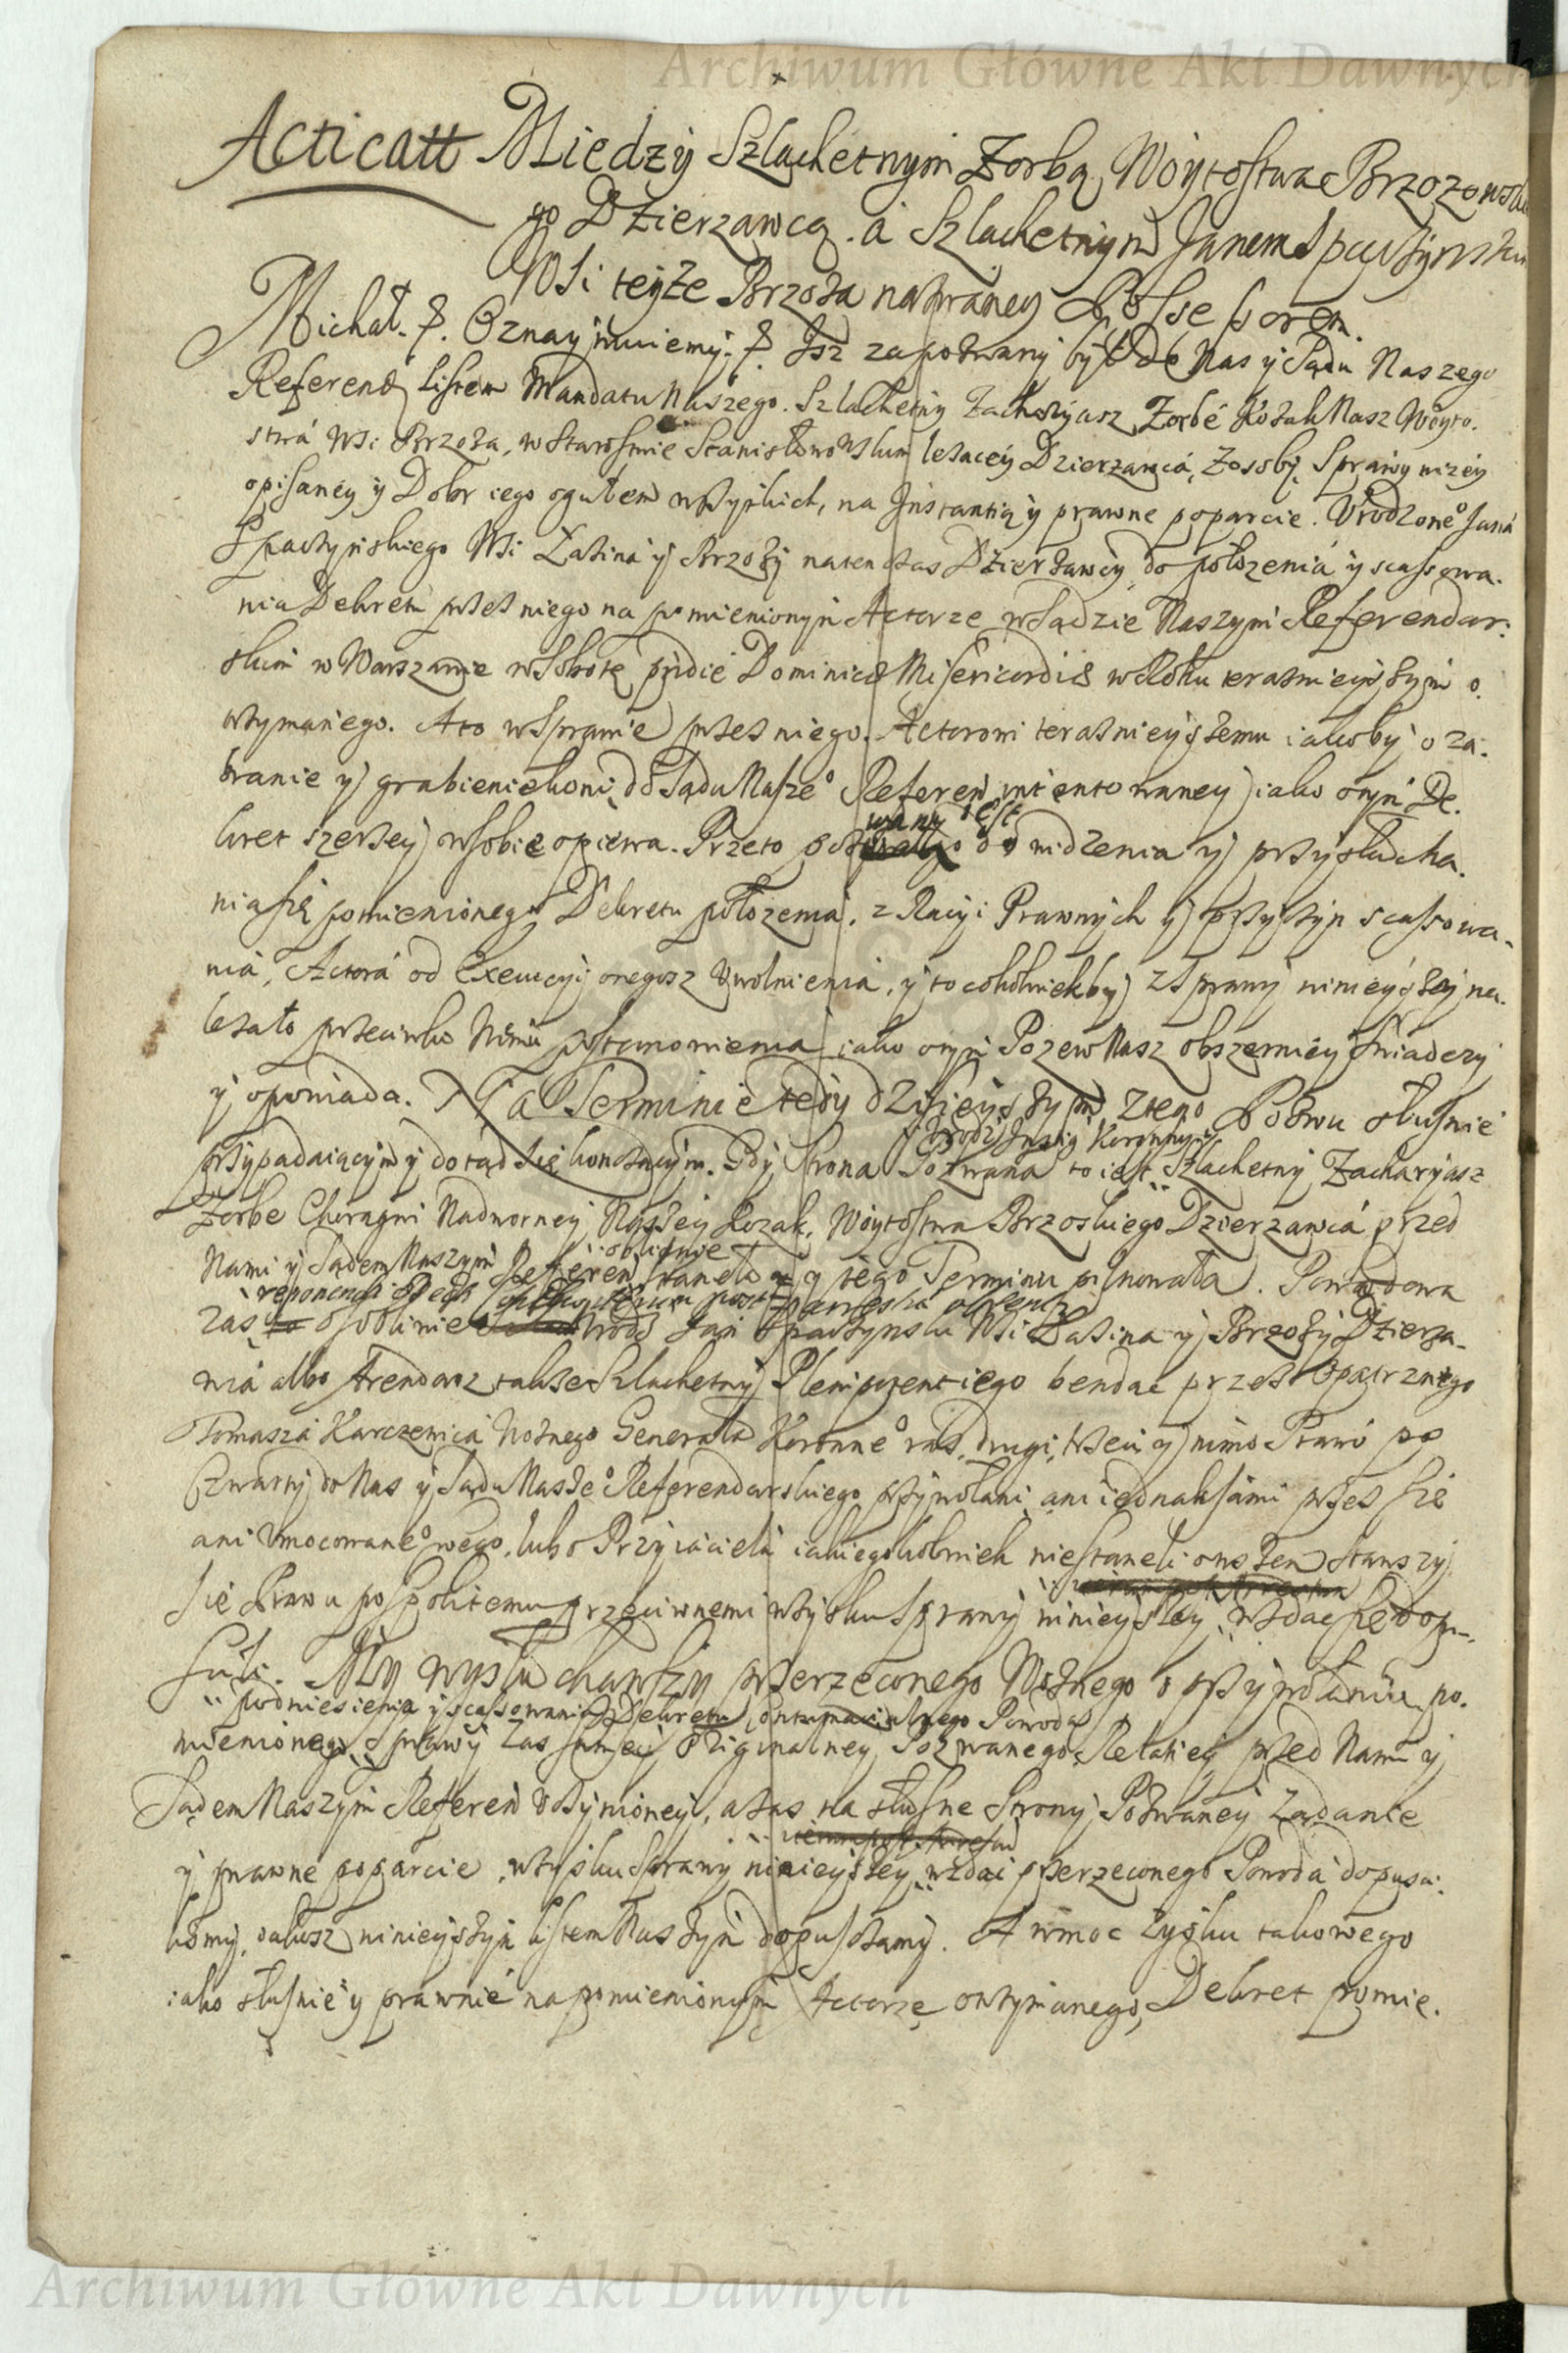 Archiwum Główne Akt Dawnych
Acticatt Miedzy Szlachetnym Zorbą Woytostwa Brzozowskie
go Dzierzawcą. a Szlachetnym Janem Spactynskim
Wsi teyże Brzoza nazwaney Possessorem.
Michał. Oznaymuiemy. Isz zapozwany był do Nas y Sądu Naszego
Referend Listem Mandatu Naszego. Szlachetny Zacharyasz Zorbe Kozak Nasz Woyto.
stwa Wsi Brzoza, w Starostwie Stanisławowskim lezacey Dzierzawca, Zosoby Sprawy nizey
opisaney y Dobr iego ogułem wszytkich, na Instantią y prawne poparcie. Urodzone° Jana
Spactynskiego Wsi Lasina y Brzozy natenczas Dzierzawcy do położenia y scassowa.
nia Dekretu przez niego na pomienionym Actorze w Sądzie Naszym Referendar:
skim w Warszawie w Sobotę pridie Dominica Misericordiae w Roku teraznieyszym o.
trzymanego. A to w Sprawie przez niego Actorowi teraznieyszemu iakoby o za:
branie y grabienie koni, do Sądu Nasze° Referen intentowaney iako onym De.
kret szerzey w sobie opiewa. Przeto pozwany iest do widzenia y przysłucha.
nia się pomienionego Dekretu położenia, z Racyi Prawnych y przyczyn scassowa-
nia, Actora od Exekucyi onegosz Uwolnienia, y to cokolwiek by z Sprawy ninieyszey na.
lezało przeciwko Niemu postanowienia iako onym Pozew Nasz obszerniey swiadczy
y opowiada. Na Terminie tedy dzisieyszym z tego Pozwu słusznie
przypadaiącym y dotąd się kończącym. Gdy Strona Pozwana to iest Szlachetny Zacharyasz
Zorbe Chorągwi Nadworney Naszey Kozak, Woytostwa Brzoskiego Dzierzawca przed
oblicznie
Nami y Sądem Naszym Referen stanęła y tego Terminu pilnowała. Powodowa
zas osobliwie Urodz Jan Spactynski Wsi Lasina y Brzozy Dzierza-
wca albo Arendarz takze Szlachetny Plenipotent iego bendąc przez Opatrznego
Tomasza Karczewica Woznego Generała Koronne° raz, drugi, trzeci y mimo Prawo po
czwarty do Nas y Sądu Nasze° Referendarskiego przywołani ani iednak sami przez się
ani Umocowane° swego, lub o Przyiaciela iakiegokolwiek nie staneli owszem stawszy
się Prawu pospolitemu przeciwnemi w zysku Sprawy ninieyszey wzdac się dopu-
scili. My wysłuchawszy przerzeconego Woznego o przywołaniu po.
podniesienia y scassowania Dekretu Contumacialnego Powoda
mienionego, Sprawy zas samey Originalney Pozwanego Relatiey przed Nami y
Sądem Naszym Referen uczynioney, a zas na słuszne Strony Pozwaney Ządanie
y prawne poparcie, w zysku Sprawy ninieyszey wzdac przerzeconego Powoda dopusci:
lismy, iakosz ninieyszym listem Naszym dopuszczamy. A w moc Zysku takowego
iako słusznie y prawnie na pomienionym Actorze otrzymanego, Dekret pomie.
Archiwum Główne Akt Dawnych